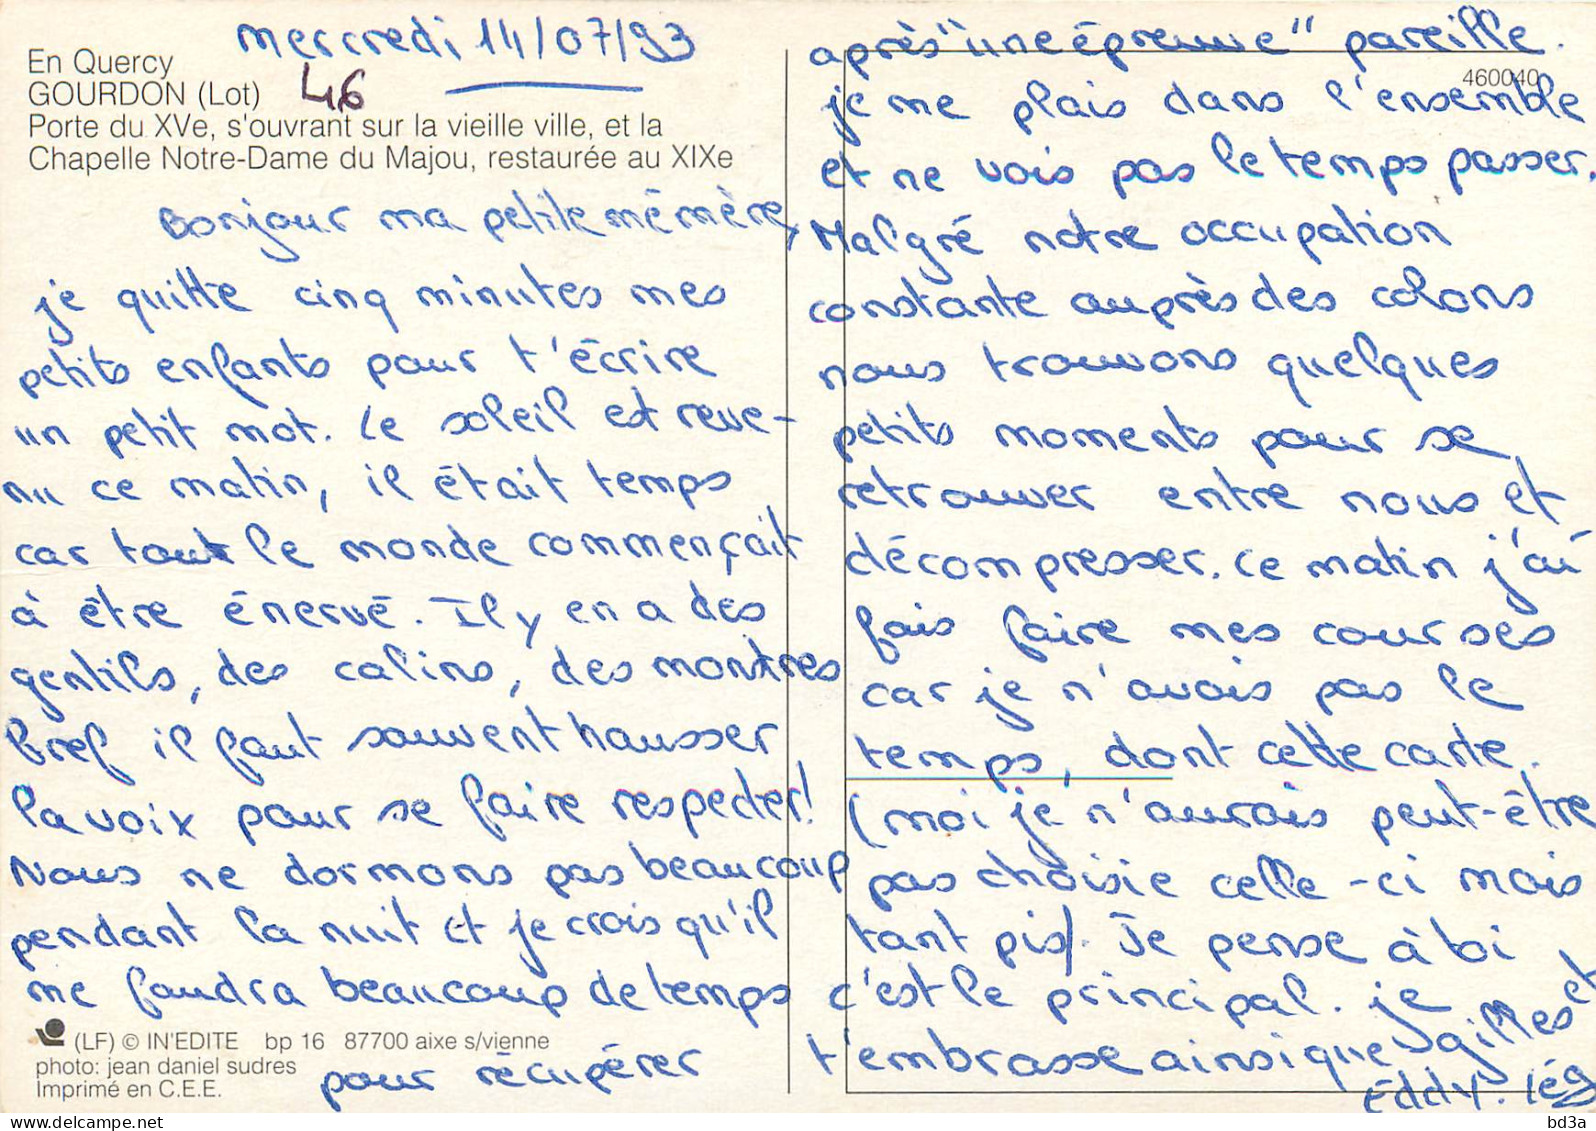 mercredi 14/07/93
En Quercy
GOURDON (Lot) 46
Porte du XVe, s'ouvrant sur la vieille ville, et la
Chapelle Notre-Dame du Majou, restaurée au XIXe
Bonjour ma petite mémère,
je quitte cinq minutes mes
petits enfants pour t'écrire
un petit mot. Le soleil est reve-
nu ce matin, il était temps
car tout le monde commençait
à être énervé. Il y en a des
gentils, des calins, des monstres
bref il faut souvent hausser
la voix pour se faire respecter!
Nous ne dormons pas beaucoup
pendant la nuit et je crois qu'il
me faudra beaucoup de temps
pour récupérer
(LF) © IN'EDITE bp 16 87700 aixe s/vienne
photo: jean daniel sudres
Imprimé en C.E.E.
après "une épreuve" pareille.
460040
je me plais dans l'ensemble
et ne vois pas le temps passer.
Malgré notre occupation
constante auprès des colons
nous trouvons quelques
petits moments pour se
retrouver entre nous et
décompresser. Ce matin j'ai
fais faire mes courses
car je n'avais pas le
temps, dont cette carte.
(moi je n'aurais peut-être
pas choisie celle-ci mais
tant pis). Je pense à toi
c'est le principal. je
t'embrasse ainsi que Gilles et
Eddy.
bd3a